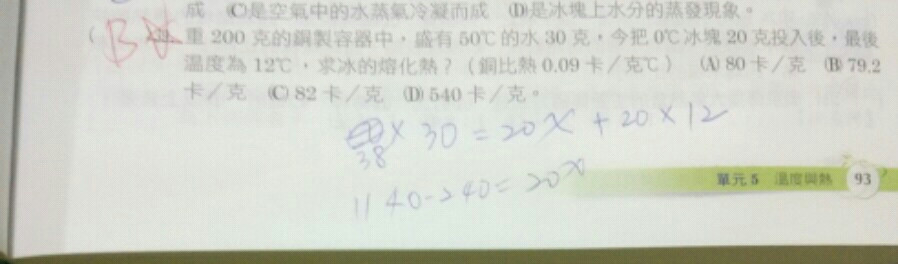 成 (C)是空氣中的水蒸氣冷凝而成 (D)是冰塊上水分的蒸發現象。
( B 重 200 克的銅製容器中,盛有 50℃ 的水 30 克,今把 0℃ 冰塊 20 克投入後,最後
溫度為 12℃,求冰的熔化熱?(銅比熱 0.09 卡/克℃) (A) 80 卡/克 (B) 79.2
卡/克 (C) 82 卡/克 (D) 540 卡/克。
38 × 30 = 20x + 20 × 12
1140-240=20x
單元 5 溫度與熱 93